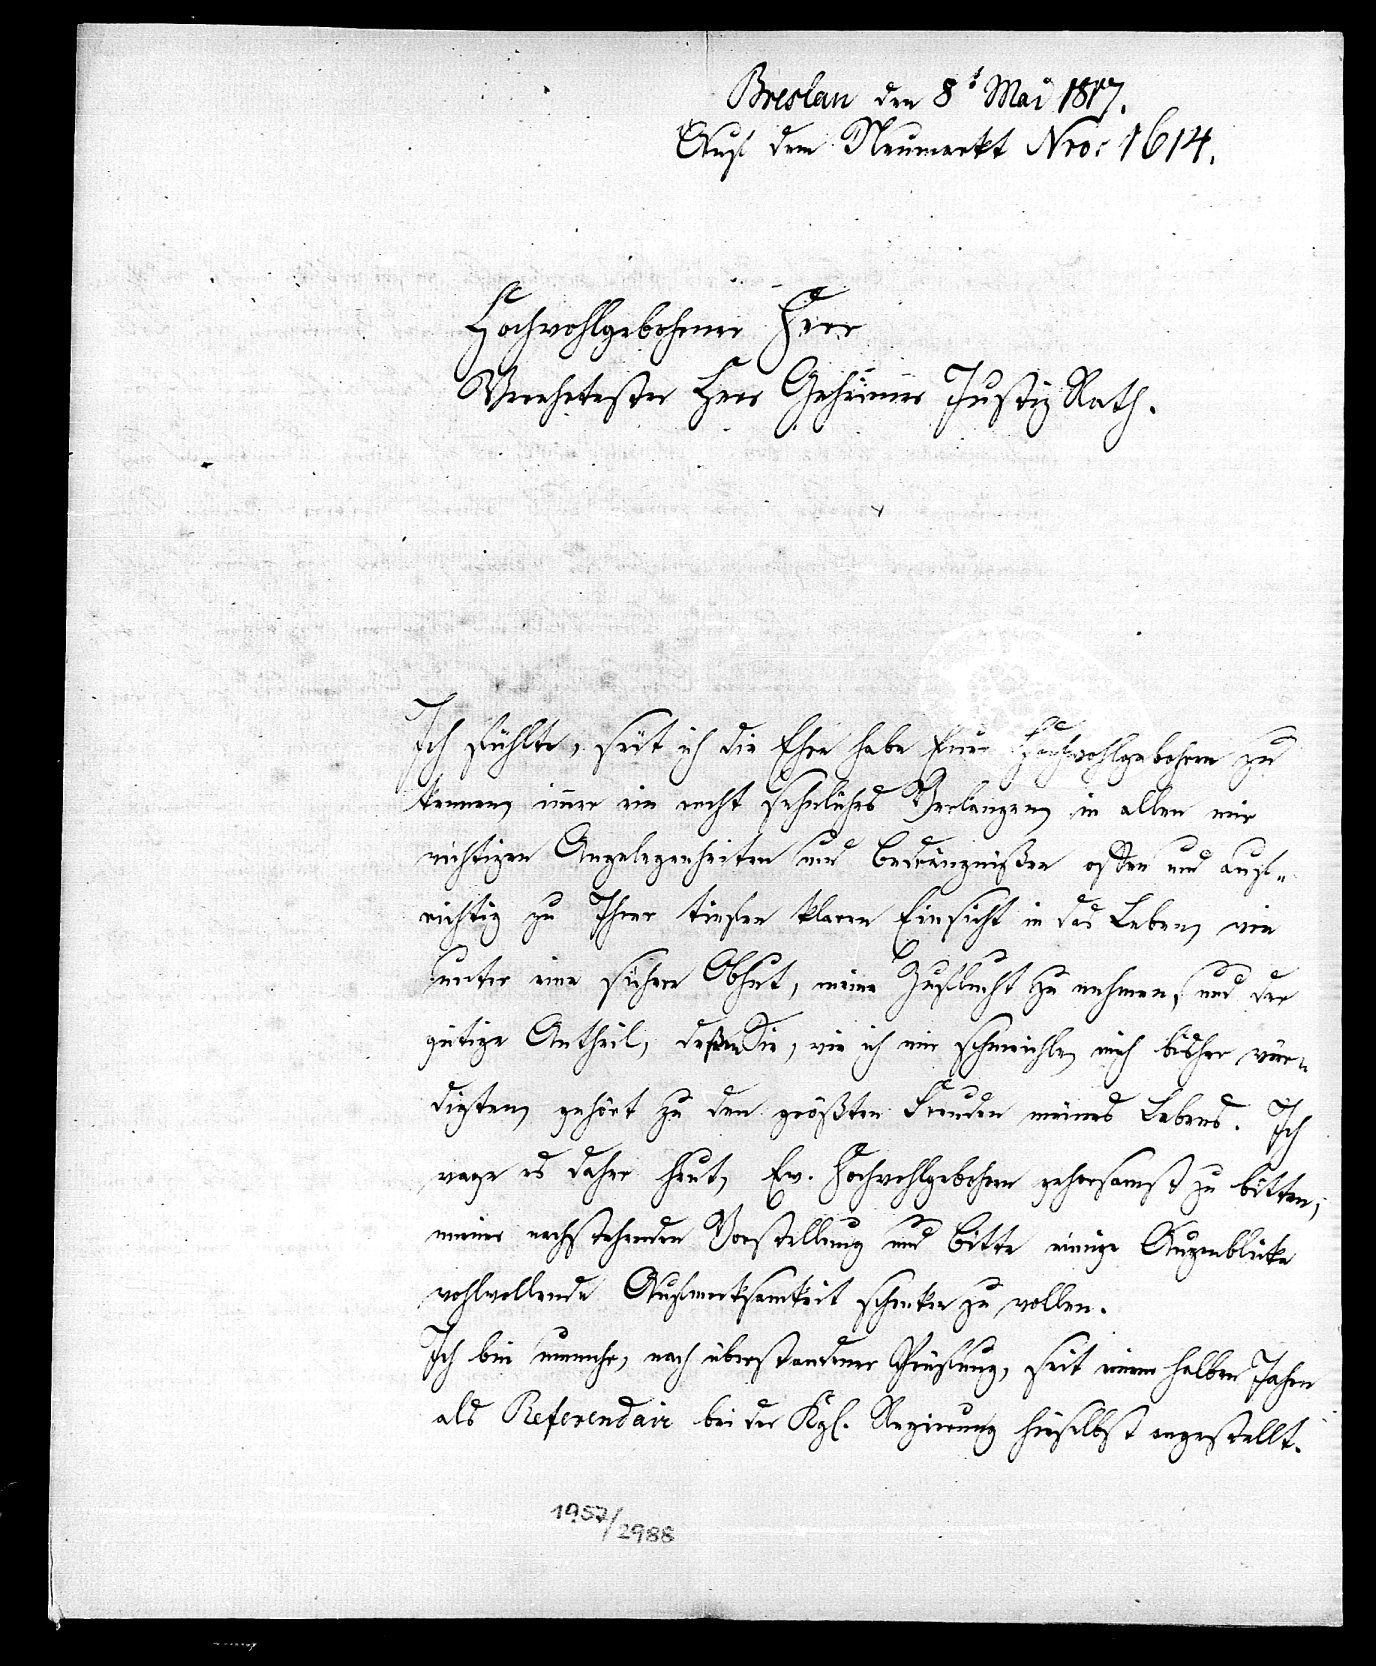 Breslau den 8t Mai 1817.
Auf dem Neumarkt Nro: 1614.
Hochwohlgebohrner Herr
Verehrtester Herr Geheimer Justiz Rath.
Ich fühlte, seit ich die Ehre habe Euer Hochwohlgebohren zu
kennen, immer ein recht sehnliches Verlangen, in allen mir
wichtigen Angelegenheiten und Bedrängnißen offen und auf-
richtig zu Ihrer tiefen klaren Einsicht in das Leben, wie
unter eine sichere Obhut, meine Zuflucht zu nehmen, und der
gütige Antheil, deßen Sie, wie ich mir schmeichle, mich bisher wür-
digten, gehört zu den größten Freuden meines Lebens. Ich
wage es daher heut, Ew. Hochwohlgebohren gehorsamst zu bitten,
meiner nachstehenden Vorstellung und Bitte einige Augenblicke
wohlwollende Aufmerksamkeit schenken zu wollen.
Ich bin nunmehr, nach überstandener Prüfung, seit einem halben Jahre
als Referendair bei der Kgl. Regierung hieselbst angestellt.
1957/2988